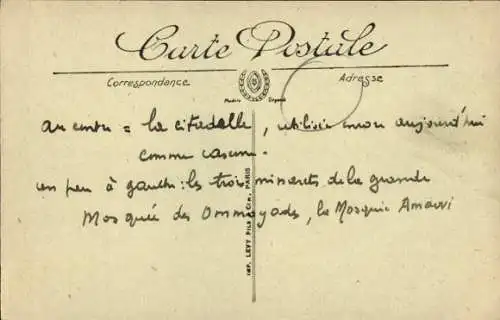 Carte Postale
Correspondance
Adresse
Modèle Déposé
au centre = la citadelle, utilisée encore aujourd'hui
comme caserne.
un peu à gauche: les trois minarets de la grande
Mosquée des Ommayads, la Mosquée Amaoui
IMP. LEVY FILS & CIE, PARIS